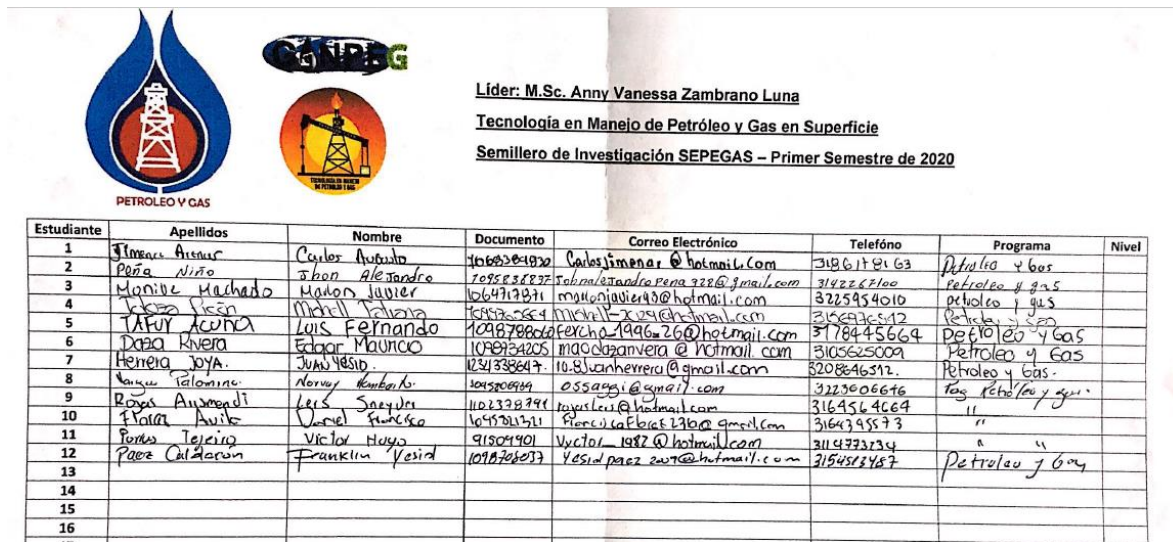 CANPEG
PETROLEO Y GAS
TECNOLOGÍA EN MANEJO
DE PETROLEO Y GAS
Líder: M.Sc. Anny Vanessa Zambrano Luna
Tecnología en Manejo de Petróleo y Gas en Superficie
Semillero de Investigación SEPEGAS – Primer Semestre de 2020
Estudiante Apellidos Nombre Documento Correo Electrónico Telefóno Programa Nivel
1 Jimenez Arenas Carlos Augusto Carlosjimenar@hotmail.com 3186178163 Petroleo y Gas
2 Peña Niño Jhon Alejandro 1095838837 Johnalejandropena928@gmail.com 3142267100 Petroleo y gas
3 Monive Machado Marlon Javier 1064717871 marlonjavier93@hotmail.com 3225954010 petroleo y gas
4 Tatiana
5 TAFUR ACUÑA Luis Fernando fercho_1996_26@hotmail.com 3178445664 Petroleo y Gas
6 Daza Rivera Edgar Mauricio 1098734205 3105625009 Petroleo y Gas
7 Herrera JOYA. JUAN YESID. 10.8juanherrera@gmail.com 3208646512. Petroleo y Gas.
8 Palomino ossaggi@gmail.com 3223606646
9 Rojas Leis Sneyder 1102378791 rojasleis@hotmail.com 3164564664 "
10 Florez Avila Daniel Francisco 3164395573 "
11 Tejeiro Victor Hugo 91509901 Vyctor_1982@hotmail.com 3114773734 " "
12 Paez Calderón Franklin Yesid 1098708037 Yesidpaez2009@hotmail.com 3154513487 Petroleo y Gas
13
14
15
16